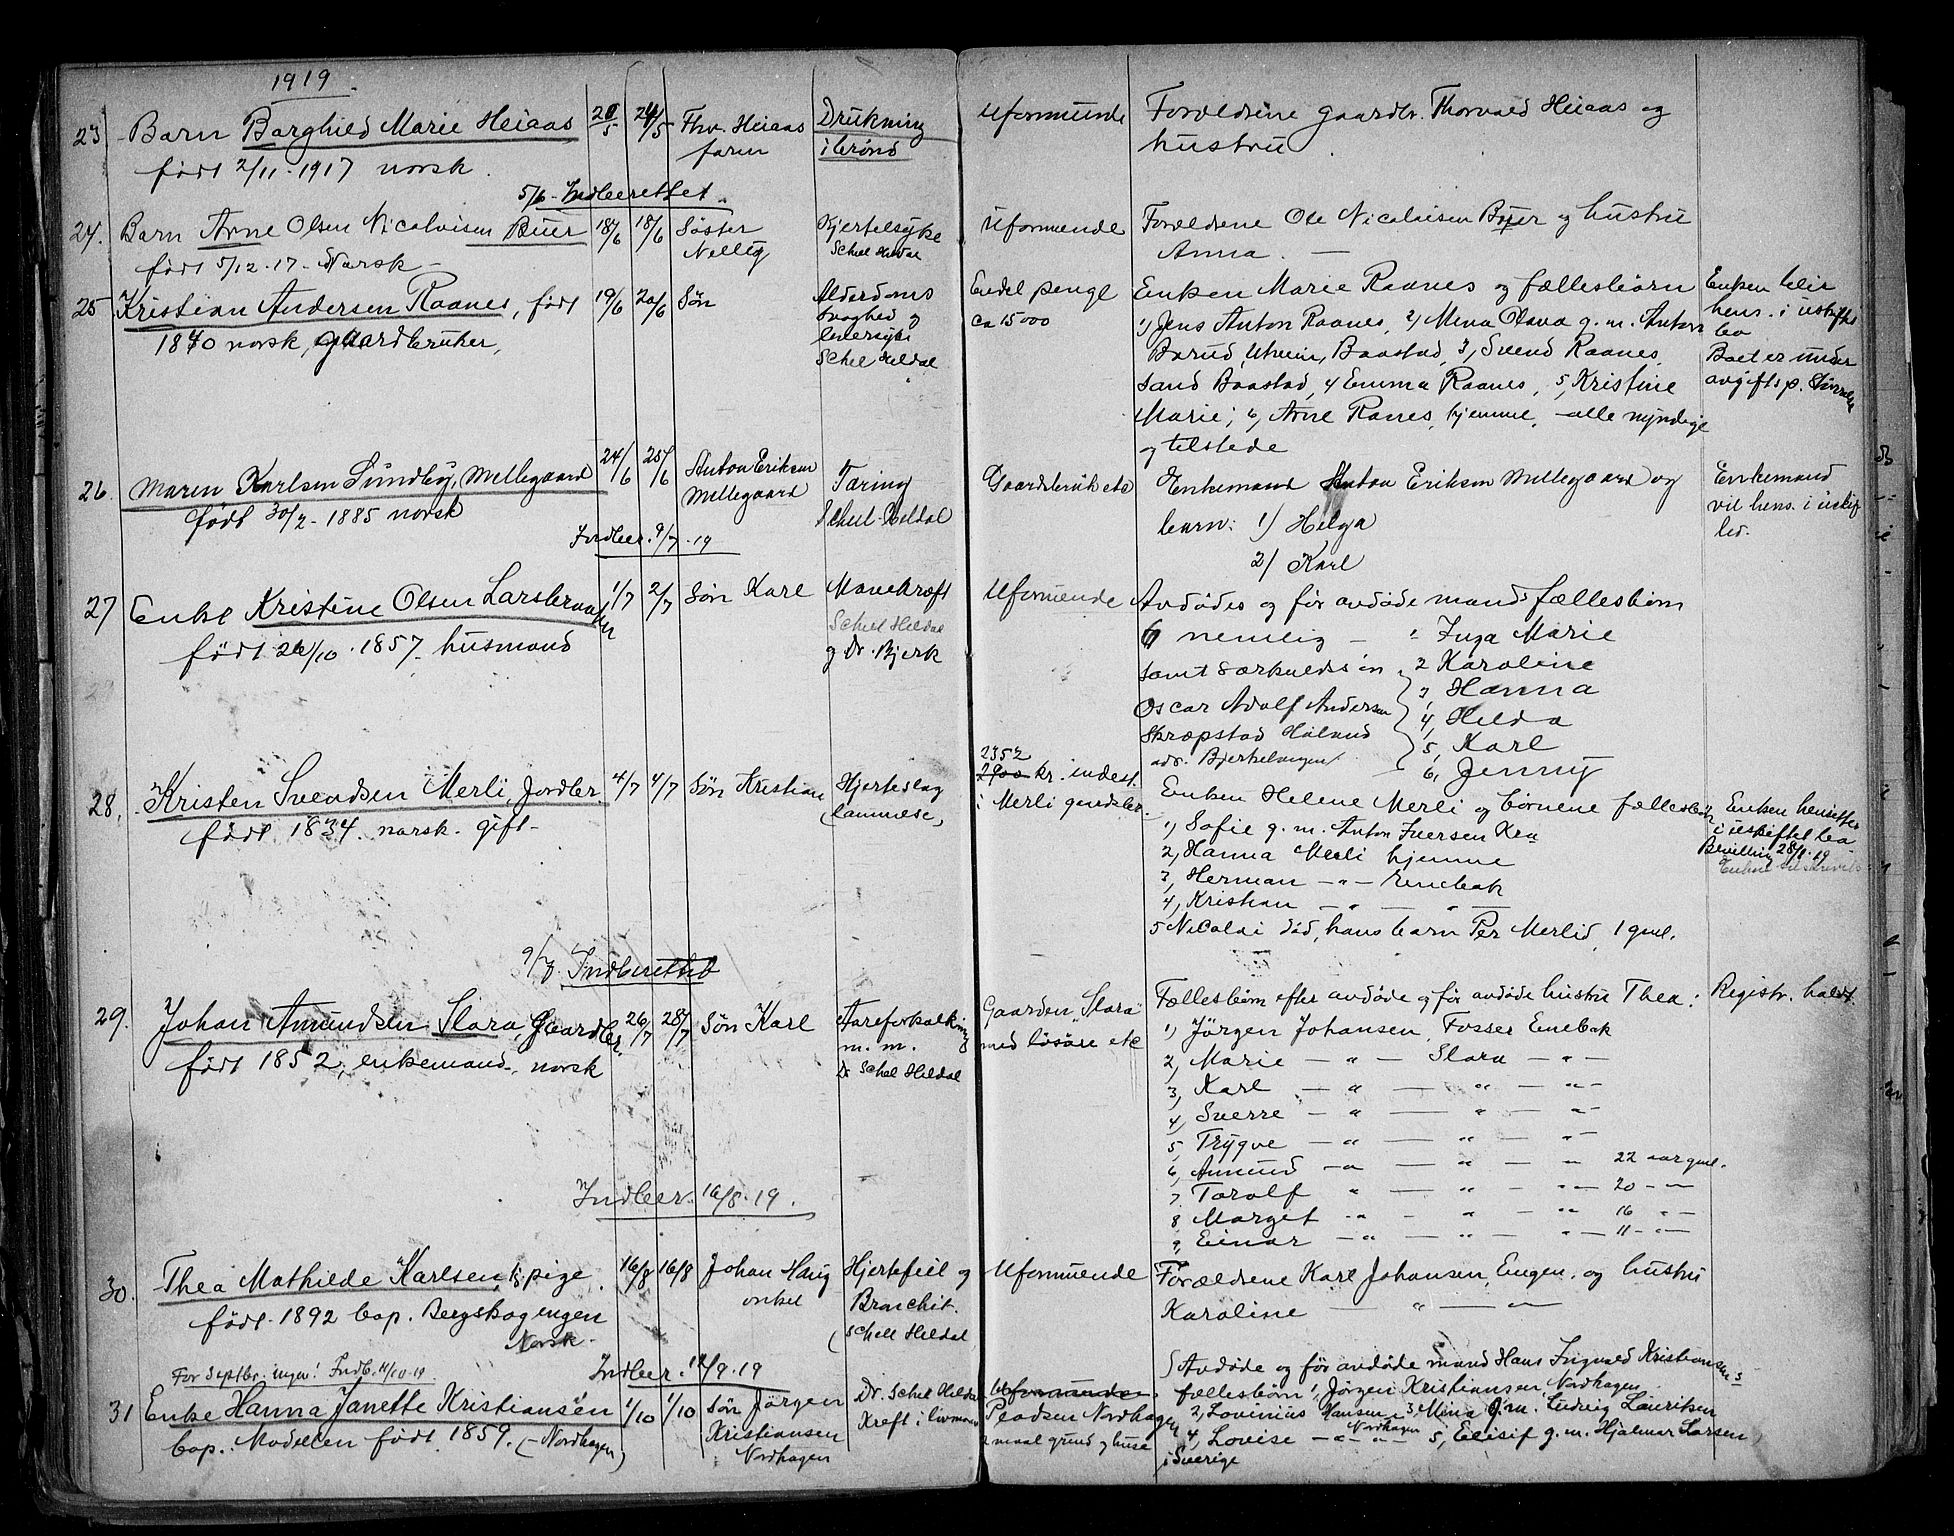 1919.
23 Barn Borghild Marie Heiaas 20/5 24/5 Thv. Heiaas Drukning Uformuende Forældrene gaardbr. Thorvald Heiaas og
født 2/11-1917 norsk. farm i brønd hustru
5/6 Indberettet.
24. Barn Arne Olsen Nicolaisen Buer 18/6 18/6 Søster Kjertelsyke Uformuende Forældrene Ole Nicolaisen Buer og hustru
født 5/12-17. Norsk - Nellig Schel Heldal Anna. -
25 Kristian Andersen Raanes, født 19/6 20/6 Søn Alderdoms Endel penge Enken Marie Raanes og fællesbørn Enken blir
1840 norsk, gaardbruker, svaghed og ca 15000 1) Jens Anton Raanes, 2) Mina Olava g.m. Anton hens. i uskiftet
leversyke Borud, Baastad, 3, Svend Raanes, bo
Schel Heldal Sand Baastad, 4 Emma Raanes, 5, Kristine Boet er under
Marie; 6, Arne Raanes, hjemme, - alle myndige avgiftsp.
og tilstede
26. Maren Karlsen Lundby, Mellegaard 24/6 25/6 Anton Eriksen Tæring Gaardsbruk etc Enkemand Anton Eriksen Mellegaard og Enkemand
født 30/2-1885 norsk Mellegaard Schel-Heldal barn: 1) Helga vil hens. i uskif
Indber. 9/7.19 2) Karl bo.
27 Enke Kristine Olsen Larsbraaten 1/7 2/7 Søn Karl Mavekræft Uformuende Avdødes og før avdøde mands fællesbørn
født 26/10.1857. husmand Schel Heldal 6 nemlig - 1 Inga Marie
og Dr. Bjerk samt særkuldssøn 2 Karoline
3, Hanna
Oscar Adolf Andersen 4, Hilda
Skrepstad Høland 5, Karl
adr. Bjerkelangen 6, Jenny
28. Kristen Svendsen Merli, Jordbr. 4/7 4/7 Søn Kristian Hjerteslag 2352 2900 kr. indest. Enken Helene Merli og børnene fællesbørn Enken hensitter
født 1834. norsk. gift - (lammelse) i Merli gaardsbr. 1) Sofie g.m. Anton Iversen Kra i uskiftet bo
2, Hanna Merli hjemme Bevilling 28/8.19
3, Herman - " - Enebak
4, Kristian - " - " -
5 Nicolai død, hans barn Per Merli, 1 gml.
9/7 Indberettet
29. Johan Amundsen Slora, Gaardbr. 26/7 28/7 Søn Karl Aareforkalkning Gaarden "Slora" Fællesbørn efter avdøde og før avdøde hustru Thea: Registr. holdt.
født 1852, enkemand, norsk m. m. med løsøre etc 1) Jørgen Johansen, Fosser Enebak
Dr Schel Heldal 2, Marie - " - Slora - " -
3, Karl - " - " - " -
4, Sverre - " - " - " -
5, Trygve - " - " - " -
6, Amund - " - " - " 22 aar gml.
7 Torolf " - " - " - 20 - " -
Indber. 16/8.19. 8 Marget - " - " - " - 16 " -
9, Einar - " - " - " - 11 - " -
30. Thea Mathilde Karlsen, pige 16/8 16/8 Johan Haug Hjertefeil og Uformuende Forældrene Karl Johansen, Engen. og hustru
født. 1892 bop. Bergskogengen onkel Bronchit. Karoline - " - " -
Norsk. Schell Heldal
For Septbr. ingen! Indb. 14/10.19 Indber. 12/9.19
31 Enke Hanna Janette Kristiansen 1/10 1/10 Søn Jørgen Dr. Schel Heldal Uformuende Avdøde og før avdøde mand Hans Ingvald Kristiansens
bop. Modellen født 1859. (- Nordhagen) Kristiansen Kreft i livmoren Pladsen Nordhagen fællesbørn 1, Jørgen Kristiansen, Nordhagen
Nordhagen 2 maal grund og huse 2, Lovinius Hansen, 3, Mina g.m. Ludvig Lauritsen
4, Lovise - " - Nordhagen 5, Elisif g.m. Hjalmar Larsen,
i Sverige